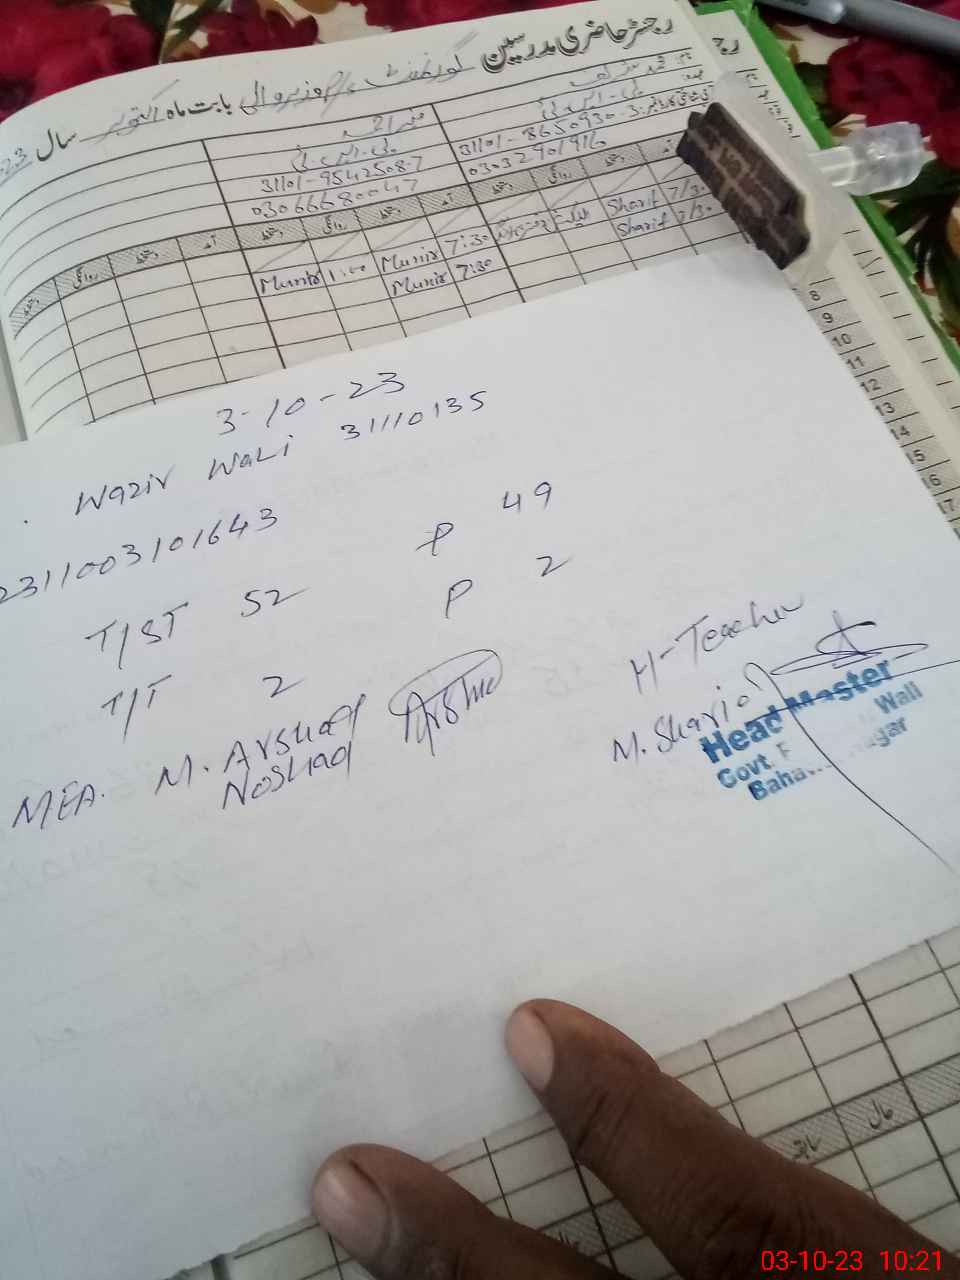 رجسٹر حاضری مدرسین گورنمنٹ بابت ماہ اکتوبر سال 23
بی۔ایس۔ٹی
31101-8650930-3
03032901916
منیر احمد
بی۔ایس۔ٹی
31101-9542508-7
03066680047
Munir 1:00 Munir 7:30 Sharif 7/30
Munir 7:30 Sharif 7/30
8
9
10
11
12
13
14
15
16
17
3-10-23
Waziv Wali 31110135
2311003101643
T/ST 52 P 49
T/T 2 P 2
MEA. M. Arshad
Noshad
H-Teacher
M. Sharif
Head Master
Govt. F Wali
Baha nagar
حال
سابقہ
03-10-23 10:21